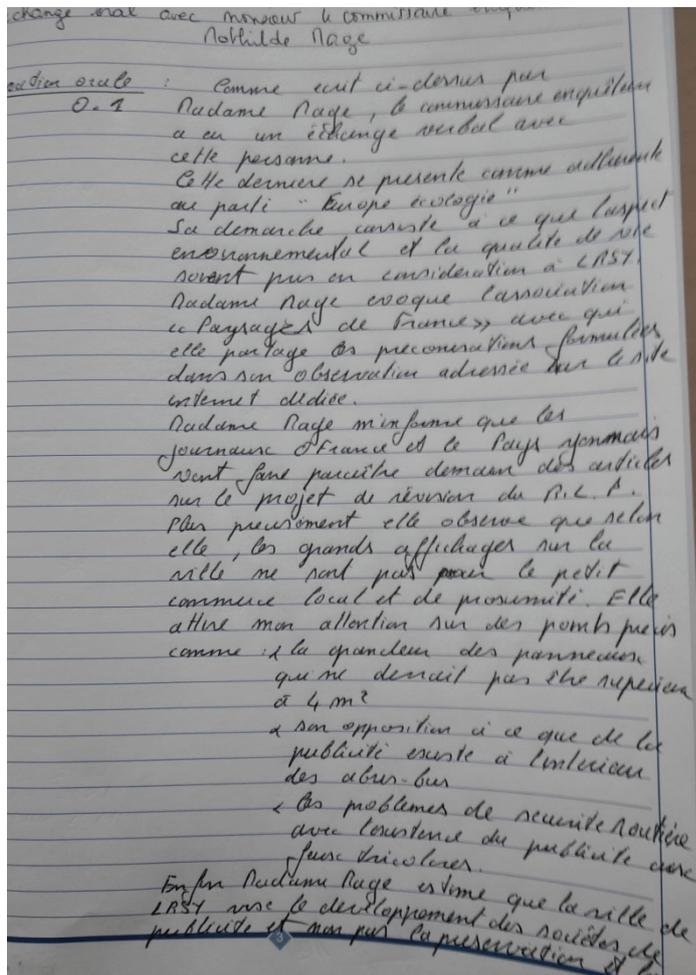 change oral avec monsieur le commissaire
Mathilde Mage
cation orale : Comme ecrit ci-dessus par
O.1 Madame Mage, le commissaire enquêteur
a eu un échange verbal avec
cette personne.
Cette derniere se presente comme adherente
au parti "Europe écologie"
Sa demarche consiste à ce que l'aspect
environnemental et la qualite de vie
soient pris en consideration à LRSY.
Madame Mage evoque l'association
"Paysages de France" avec qui
elle partage les preconisations formulées
dans son observation adressée sur le site
internet dédiée.
Madame Mage m'informe que les
journaux OFrance et le Pays yonnais
vont faire paraître demain des articles
sur le projet de révision du R.L.P.
Plus precisement elle observe que selon
elle, les grands affichages sur la
ville ne sont pas pour le petit
commerce local et de proximité. Elle
attire mon attention sur des points précis
comme : la grandeur des panneaux
qui ne devrait pas être superieur
à 4 m²
son opposition à ce que de la
publicité existe à l'interieur
des abris-bus
les problemes de securité routière
avec l'existence du publicité aux
feux tricolores.
Enfin Madame Mage estime que la ville de
LRSY vise le developpement des sociétés de
publicite et non pas la préservation
3